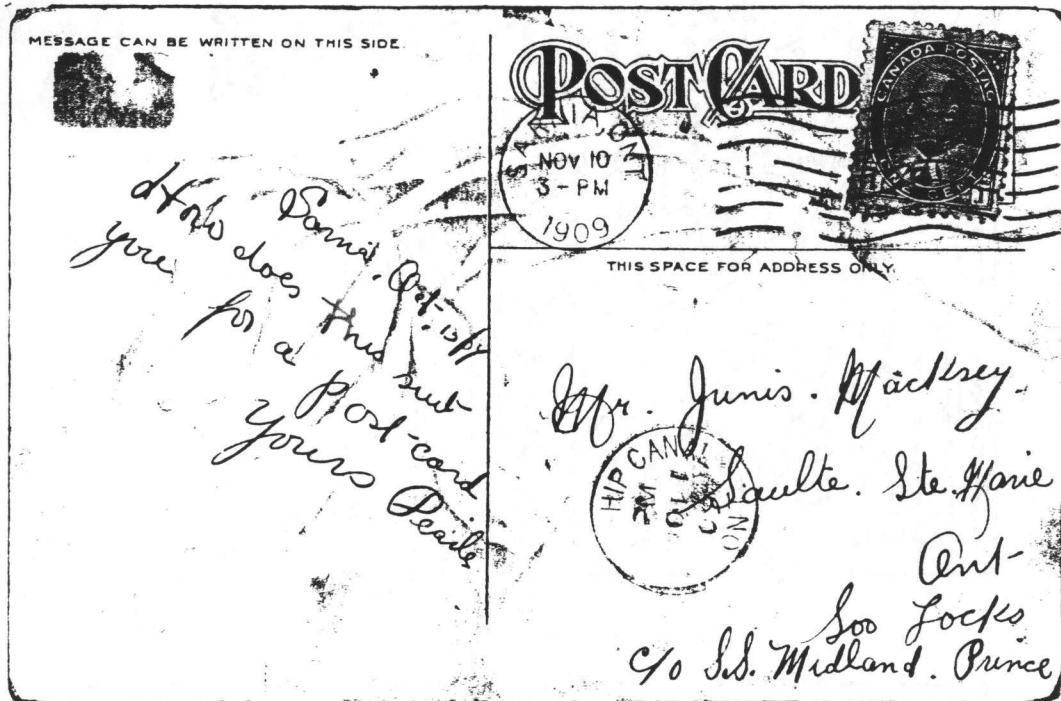 MESSAGE CAN BE WRITTEN ON THIS SIDE.
Sarnia, Oct.
How does this suit
you for a post-card
Yours
POST CARD
CANADA POSTAGE
SARNIA, ONT
NOV 10
3-PM
1909
THIS SPACE FOR ADDRESS ONLY.
Mr. Junis. Macksey.
Saulte. Ste. Marie
Ont-
Soo Locks
c/o S.S. Midland. Prince
HIP CANAL
PM 11
ON